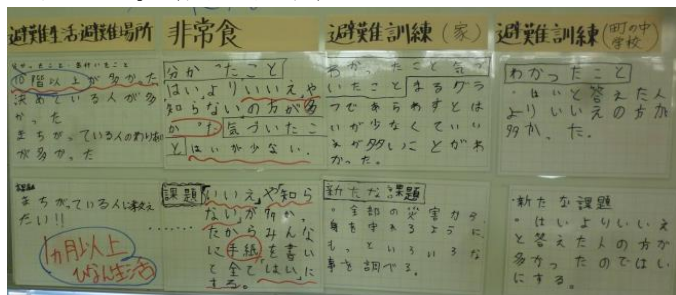 避難生活避難場所
わかったこと・気付いたこと
10階以上が多かった
決めている人が多
かった
まちがっている人のわりあい
が多かった
課題
まちがっている人に教え
たい!!
1ヵ月以上
ひなん生活
非常食
分かったこと
はい、よりいいえ、や
知らない、の方が多
かった 気づいたこ
と はいが少ない。
課題 「いいえ」や「知ら
ない」が多かっ
たからみんな
に手紙を書い
て全て「はい」に
する。
避難訓練(家)
わかったこと気づ
いたこと まるグラ
フであらわすとは
いが少なくていい
えが多いことがわ
かった。
新たな課題
・全部の災害から
身を守れるように、
もっといろいろな
事を調べる。
避難訓練(町の中 学校)
わかったこと
・はいと答えた人
よりいいえの方が
多かった。
・新たな課題
・はいよりいいえ
と答えた人の方が
多かったのではい
にする。